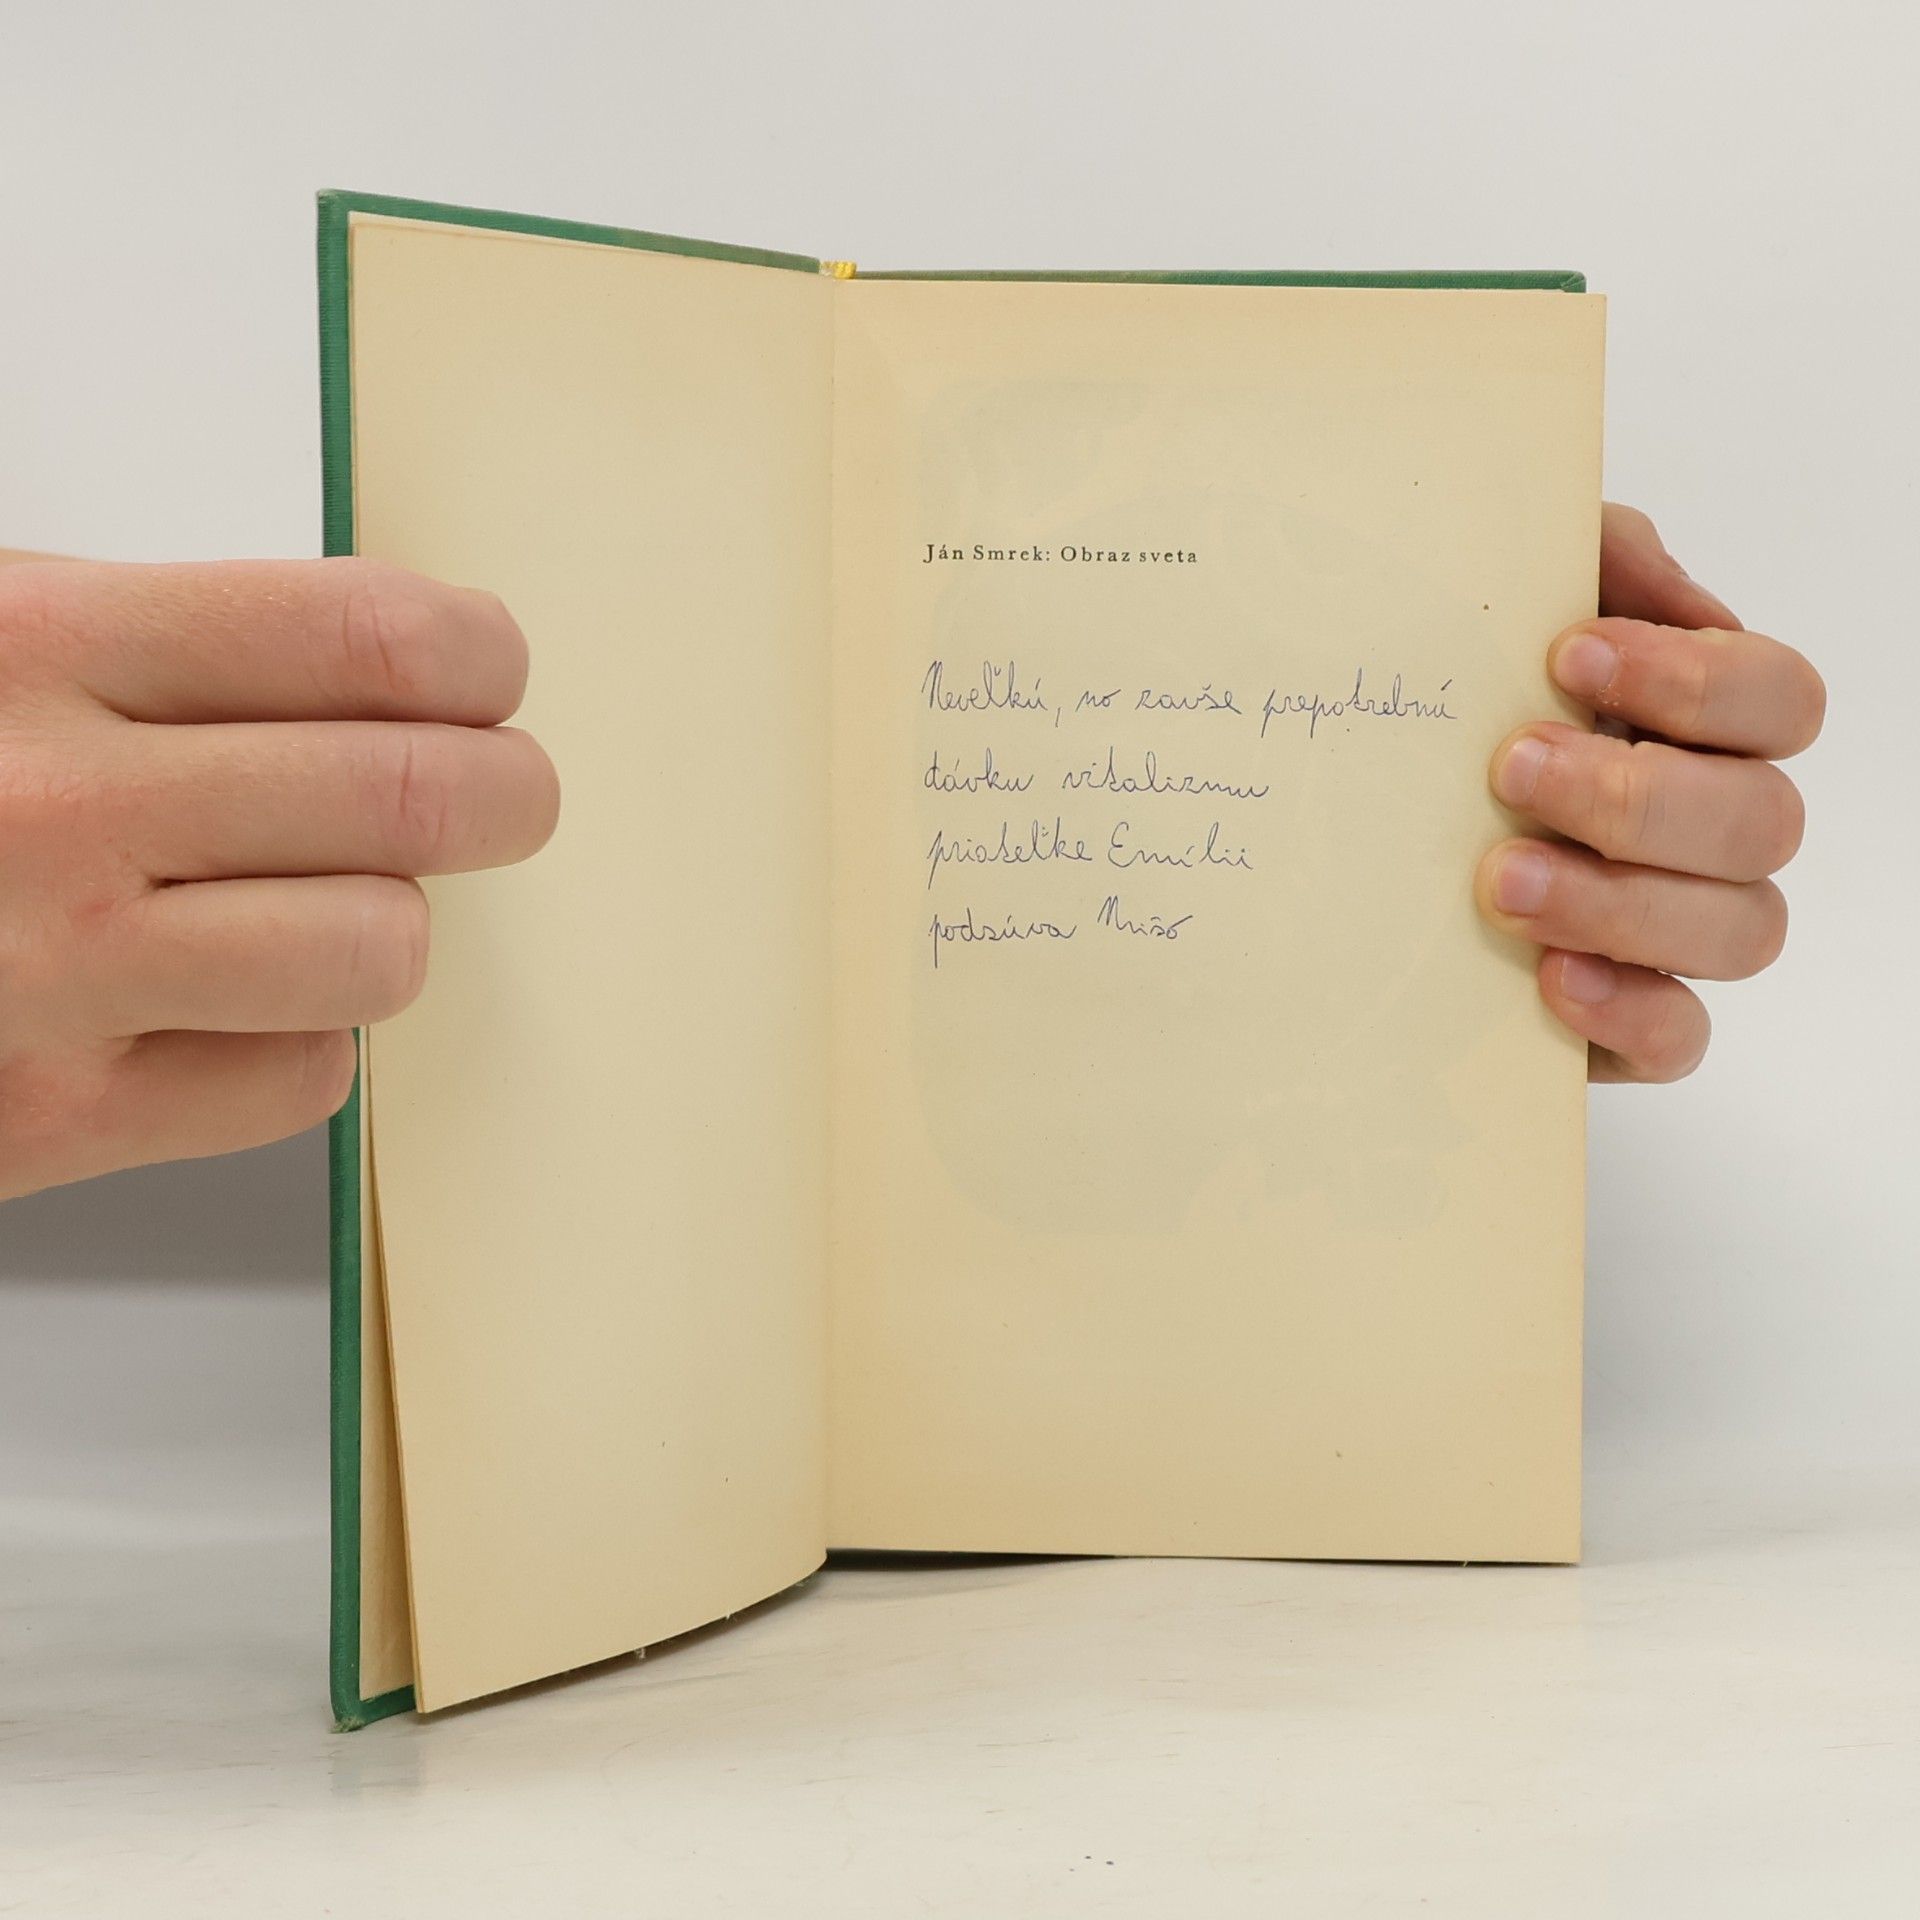 Ján Smrek: Obraz sveta
Neveľkú, no zavše prepotrebnú
dávku vitalizmu
priateľke Emílii
podsúva Mišo